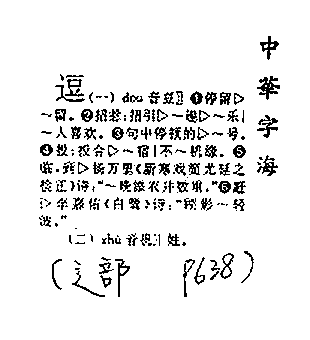 中華字海
逗 (一) dòu 音豆 ❶停留▷
～留。❷招惹;招引▷～趣▷～乐|
～人喜欢。❸句中停顿的▷～号。
❹投;投合▷～宿|不～机缘。❺
临,到▷杨万里《新寒戏简尤延之
检正》诗:“～晚添衣并数重。”❻
▷李嘉佑《白鹭》诗:“顾影～轻
波。”
(二) zhù 音 姓。
(辶部 P638)